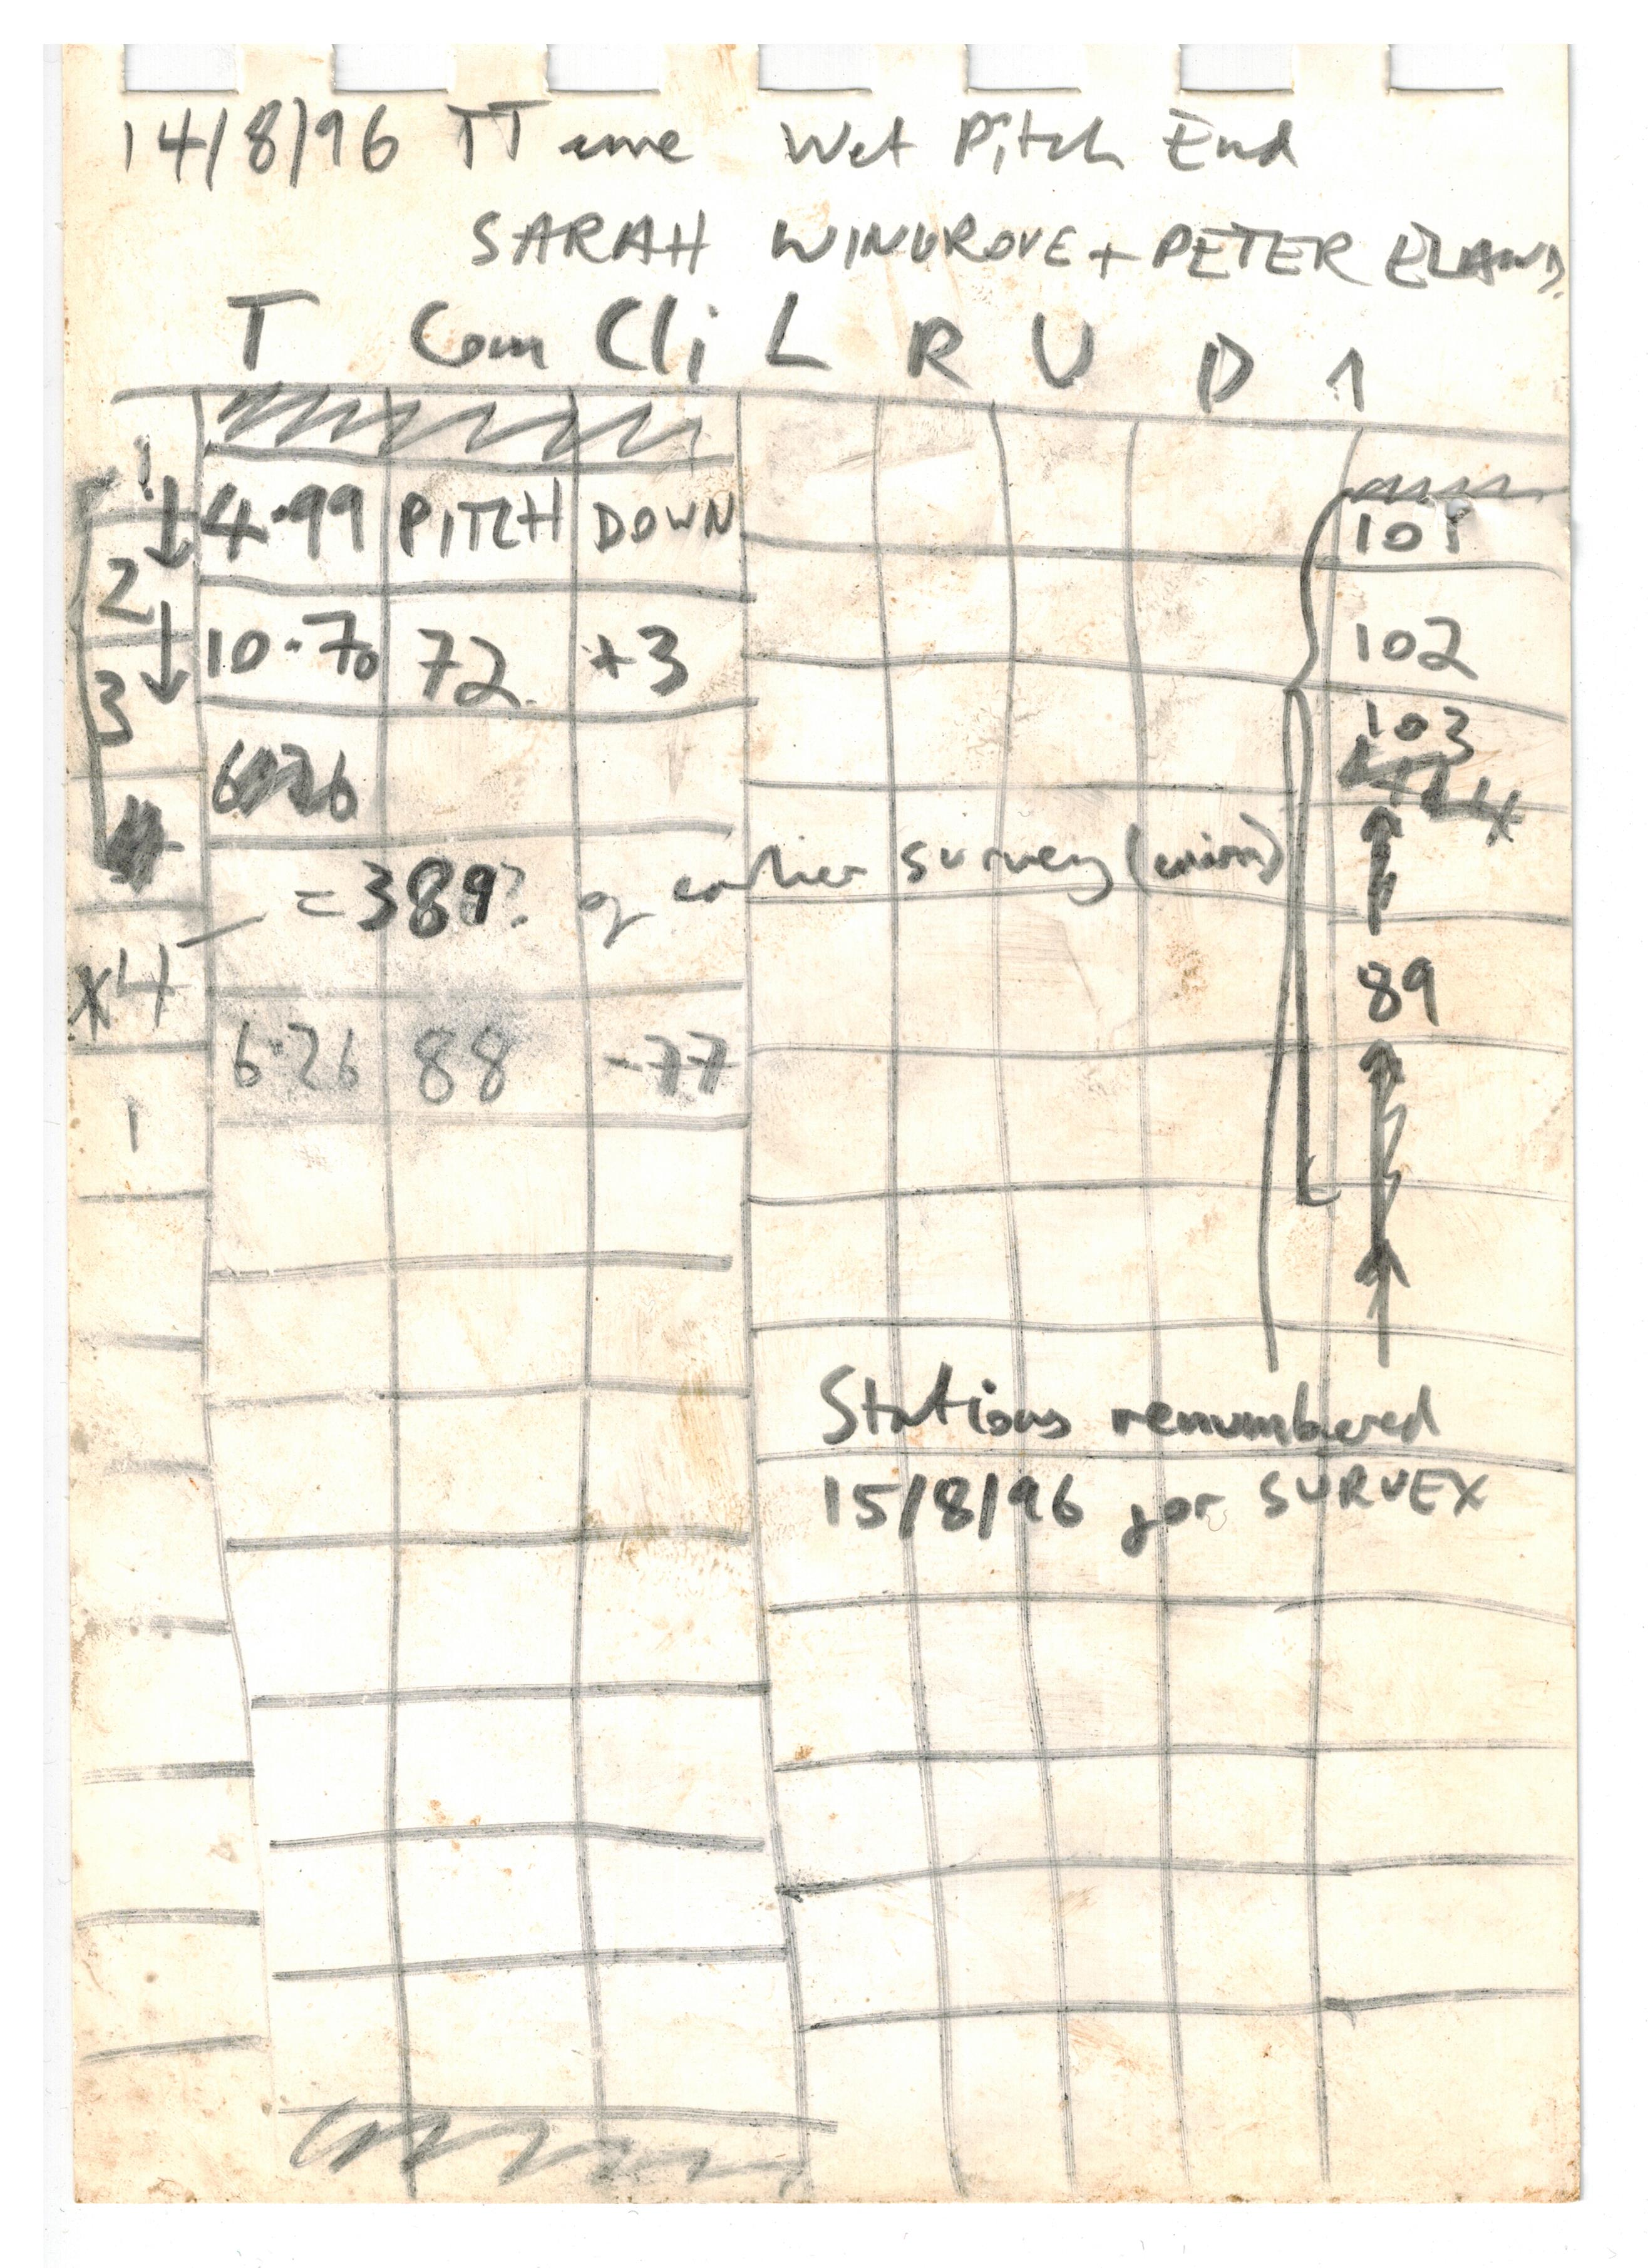 14/8/96 TT Wet Pitch End
SARAH WINGROVE + PETER ELAND
T Com Cli L R U D
1
4.99 PITCH DOWN 101
2
10.70 72 +3 102
3
103
6.26
= 389? of earlier survey
x4 89
6.26 88 -77
1
Stations renumbered
15/8/96 for SURVEX